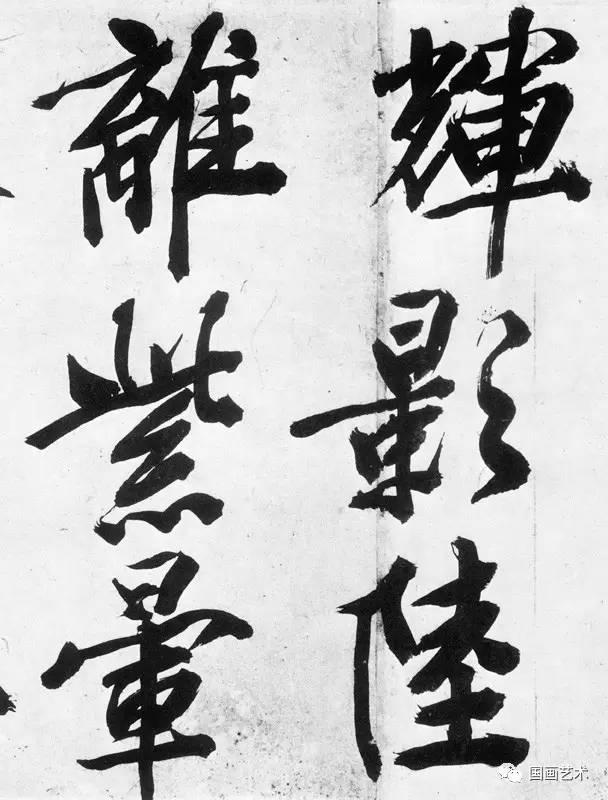 輝影陸
離紫暈
国画艺术